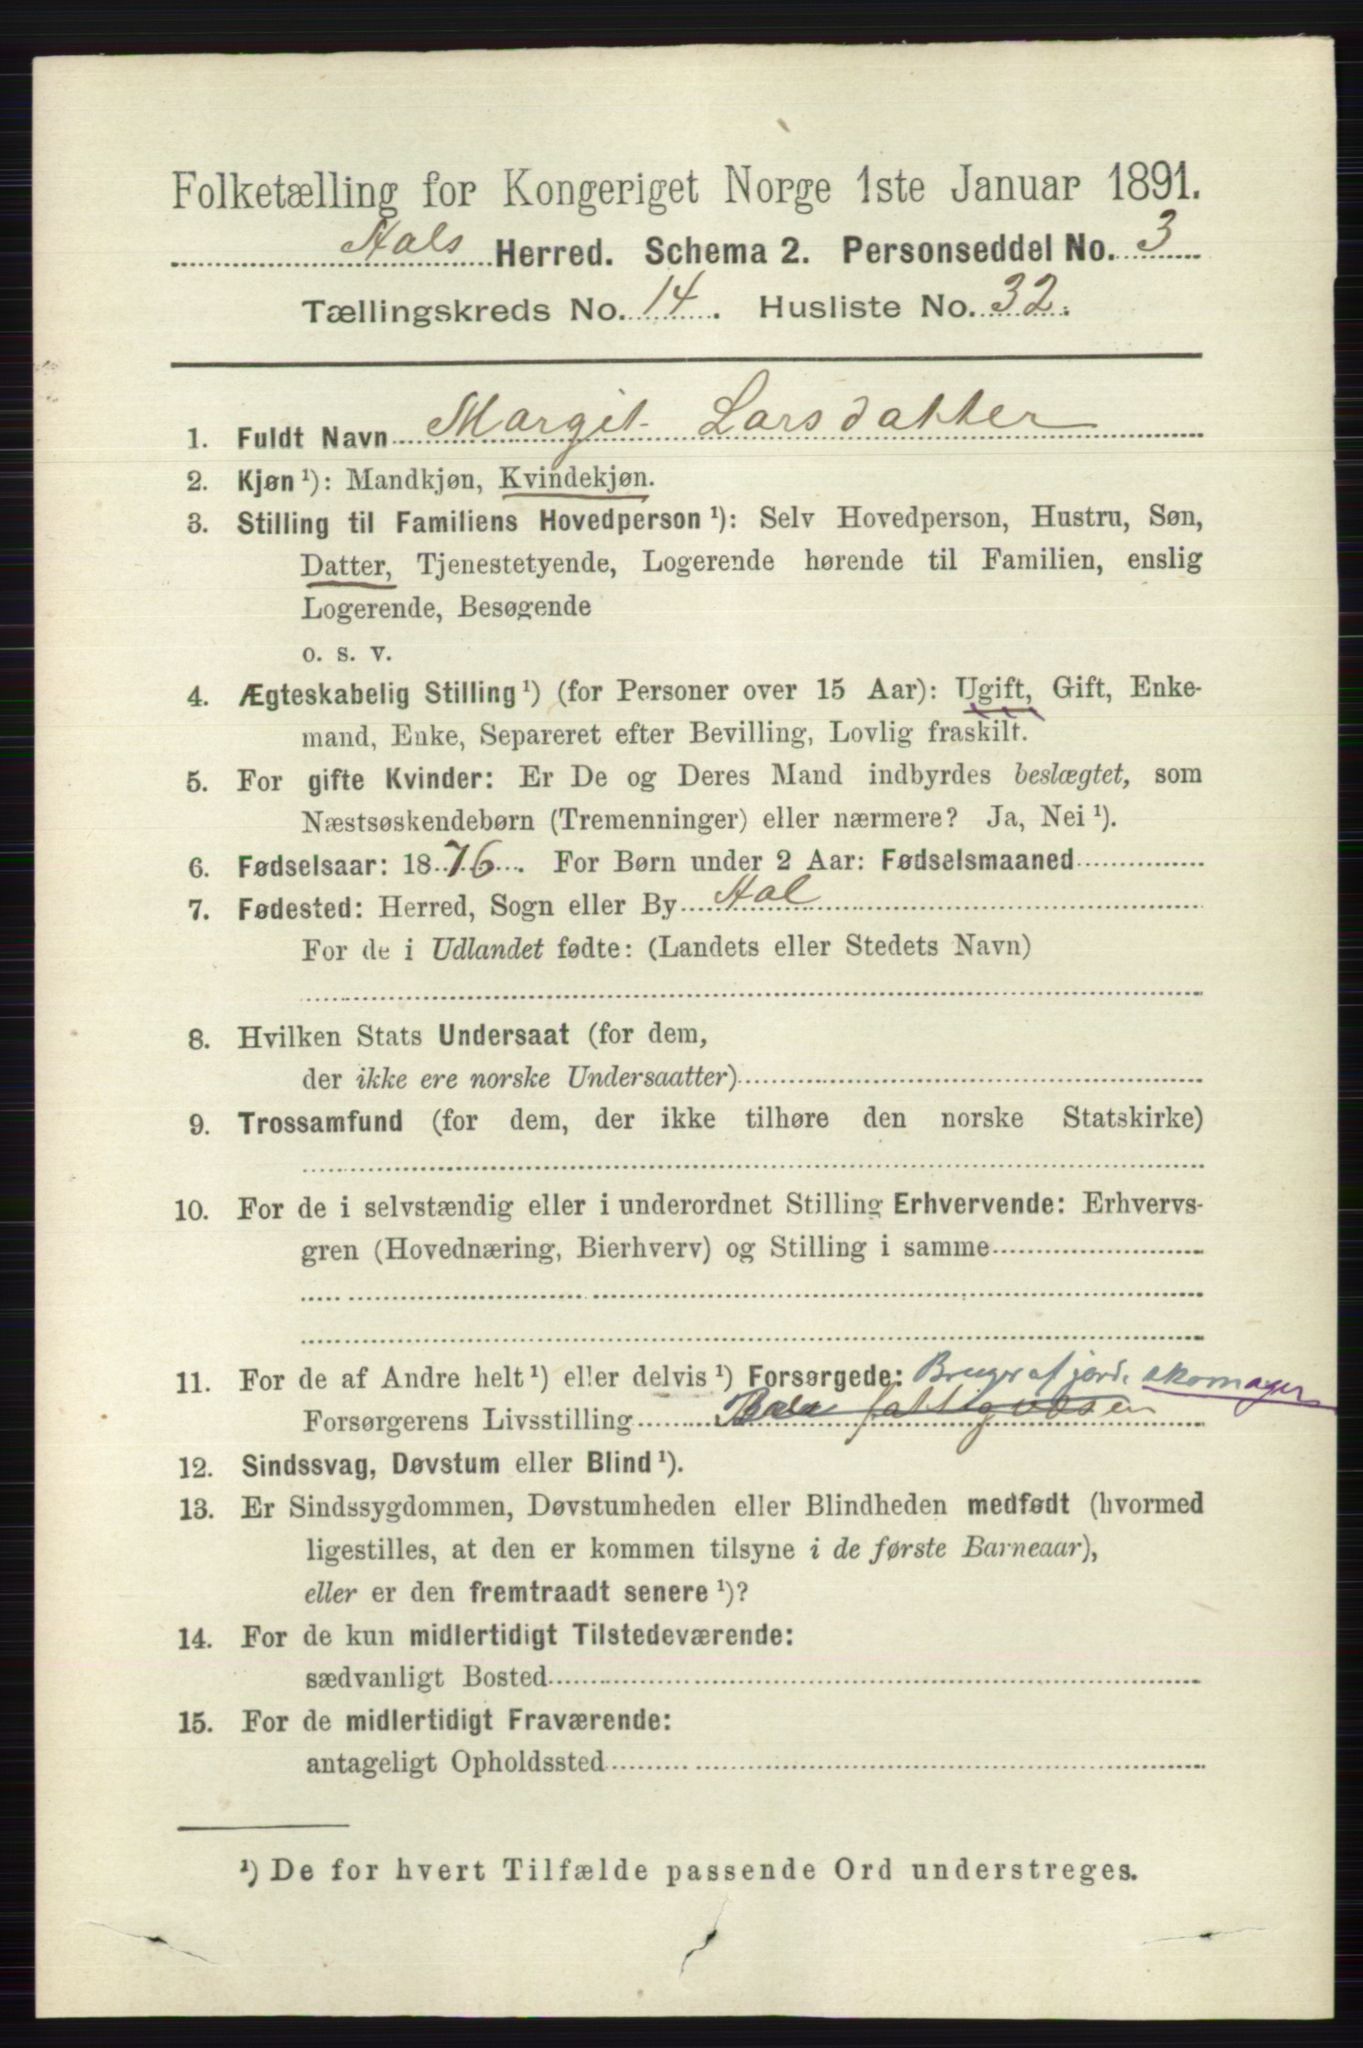 Folketælling for Kongeriget Norge 1ste Januar 1891.
Aals Herred. Schema 2. Personseddel No. 3
Tællingskreds No. 14. Husliste No. 32.
1. Fuldt Navn Margit Larsdatter
2. Kjøn ¹): Mandkjøn, Kvindekjøn.
3. Stilling til Familiens Hovedperson ¹): Selv Hovedperson, Hustru, Søn,
Datter, Tjenestetyende, Logerende hørende til Familien, enslig
Logerende, Besøgende
o. s. v.
4. Ægteskabelig Stilling ¹) (for Personer over 15 Aar): Ugift, Gift, Enke-
mand, Enke, Separeret efter Bevilling, Lovlig fraskilt.
5. For gifte Kvinder: Er De og Deres Mand indbyrdes beslægtet, som
Næstsøskendebørn (Tremenninger) eller nærmere? Ja, Nei ¹).
6. Fødselsaar: 1876. For Børn under 2 Aar: Fødselsmaaned
7. Fødested: Herred, Sogn eller By Aal
For de i Udlandet fødte: (Landets eller Stedets Navn)
8. Hvilken Stats Undersaat (for dem,
der ikke ere norske Undersaatter)
9. Trossamfund (for dem, der ikke tilhøre den norske Statskirke)
10. For de i selvstændig eller i underordnet Stilling Erhvervende: Erhvervs-
gren (Hovednæring, Bierhverv) og Stilling i samme
11. For de af Andre helt ¹) eller delvis ¹) Forsørgede: Bruger af jord. skomager
Forsørgerens Livsstilling
12. Sindssvag, Døvstum eller Blind ¹).
13. Er Sindssygdommen, Døvstumheden eller Blindheden medfødt (hvormed
ligestilles, at den er kommen tilsyne i de første Barneaar),
eller er den fremtraadt senere ¹)?
14. For de kun midlertidigt Tilstedeværende:
sædvanligt Bosted
15. For de midlertidigt Fraværende:
antageligt Opholdssted
¹) De for hvert Tilfælde passende Ord understreges.